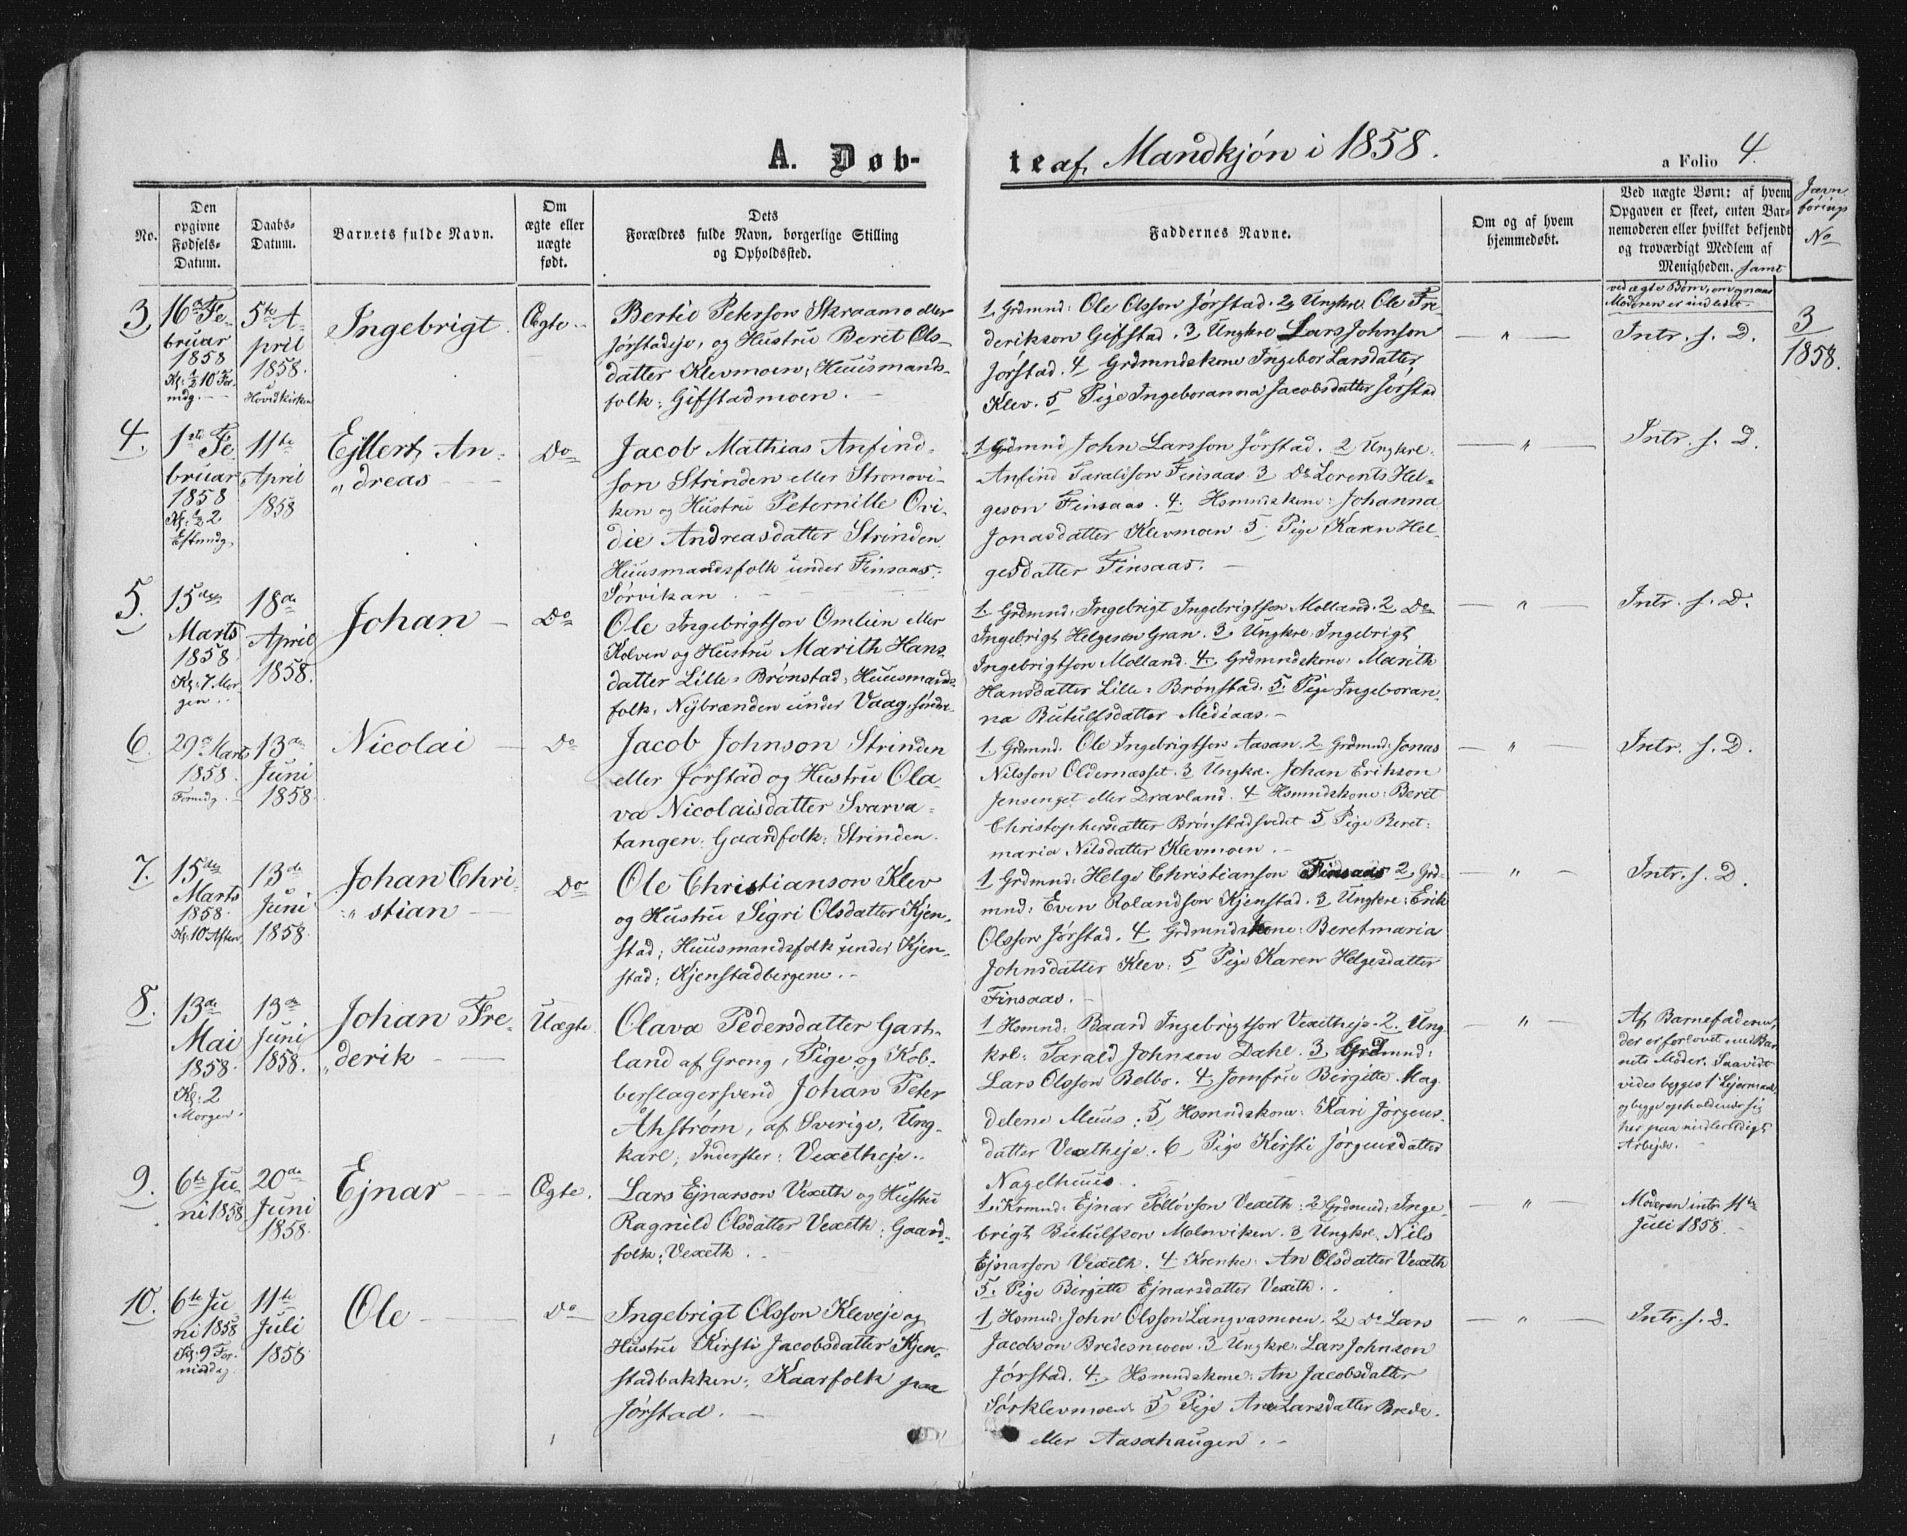 A. Døb-
te af Mandkjøn i 1858.
a Folio 4.
No.
Den opgivne Fødsels-Datum.
Daabs-Datum.
Barnets fulde Navn.
Om ægte eller uægte født.
Dets
Forældres fulde Navn, borgerlige Stilling
og Opholdssted.
Faddernes Navne.
Om og af hvem
hjemmedøbt.
Ved uægte Børn: af hvem
Opgaven er skeet, enten Bar-
nemoderen eller hvilket bekjendt
og troværdigt Medlem af
Menigheden. samt
ved ægte Børn, om og naar
Moderen er indledet
Jævn
førings
No
3,
16de Fe-
bruar
1858
Kl: ½10 For
mdg.
5te A-
pril
1858.
Hovidkirken
Ingebrigt
Ægte
Bertil Peterson Skraamo eller
Jørstadeje, og Hustru Berit Ols-
datter Klevmoen, Huusmands-
folk: Gifstadmoen.
1. Grdmnd: Ole Olsson Jørstad. 2, Ungkrl Ole Fre
derikson Gifstad. 3 Ungkrl Lars Johnson
Jørstad. 4 Grdmndskone Ingebor Larsdatter,
Klev. 5 Pige Ingeboranna Jacobsdatter Jørstad
— " —
Intr. s. D.
3
1858.
4.
1ste Fe
bruar
1858
Kl: ½2
Eftmdg.
11te
April
1858
Ejllert An-
"dreas
Do
Jacob Mathias Anfind-
son Strinden eller Stronovi-
ken og Hustru Peternille Ovi-
die Andreasdatter Strinden
Huusmandsfolk under Finsaas:
Sørvikan
1 Grdmnd John Larsson Jørstad. 2 Ungkrl.
Anfind Taraldson Finsaas 3 Do Lorents Hel-
geson Finsaas. 4. Hsmndskone: Johanna
Jonasdatter Klevmoen 5. Pige Karn Hel-
gesdatter Finsaas.
— " —
Intr. s. D.
5.
15de
Marts
1858.
Kl: 7 Mor
gen.
18de
April
1858.
Johan
Do
Ole Ingebrigtson Omlien eller
Kolven og Hustru Marith Hans-
datter Lille-Brønstad, Huusmands-
folk, Nÿbrænden under Vaag, søndre
1. Grdmnd: Ingebrigt Ingebrigtson Molland. 2 Do
Ingebrigt Helgeson Gran. 3, Ungkrl: Ingebrigt
Ingebrigtson Molland. 4. Grdmndskone: Marith
Hansdatter Lille-Brønstad. 5. Pige Ingeboran
na Butulfsdatter Mediaas.
— " —
Intr. s. D.
6.
29de Marts
1858.
Formdg.
13de
Juni
1858.
Nicolai
Do
Jacob Johnson Strinden
eller Jørstad og Hustru Ola
va Nicolaisdatter Svarva-
tangen: Gaardfolk: Strinden.
1 Grdmnd. Ole Ingebrigtson Aasan. 2 Grdmnd: Jonas
Nilsson Oldernæsset. 3 Ungkr. Johan Erikson
Jensenget eller Dravland. 4 Hsmndskone: Beret
Christophersdatter Brønstadsvedet 5 Pige Beret-
maria Nilsdatter Klevmoen.
— " —
Intr. s. D.
7.
15de
Marts
1858.
Kl: 10 Aften
13de
Juni
1858.
Johan Chri-
" stian
Do
Ole Christianson Klev
og Hustru Sigri Olsdatter Kjen-
stad; Huusmandsfolk under Kjen-
stad; Kjenstadbergene.
1 Grdmnd: Helge Christianson Finsaas 2, Grd-
mnd: Even Rolandson Kjenstad. 3 Ungkre: Erik
Olsson Jørstad. 4 Grdmndskone: Beretmaria
Johnsdatter Klev: 5 Pige Karen Helgesdatter
Finsaas.
— " —
Intr. s. D.
8.
13de
Mai
1858.
Kl: 2
Morgen.
13de
Juni
1858.
Johan Fre-
"derik
Uægte
Olava Pedersdatter Gart-
land af Grong, Pige og Kob-
berslagersvend Johan Peter
Åhstrøm, af Sverige, Ung-
karl; Inderster: Vexetheje.
1 Hsmnd: Baard Ingebrigtson Vexetheje. 2. Ung
krl: Tarald Johnson Dahl. 3 Grdmnd:
Lars Olsson Belbo. 4, Jomfrue Birgitte Mag
delene Muus; 5, Hsmndskone: Kari Jørgens-
datter Vexetheje. 6 Pige Kirsti Jørgensdatter
Nagelhuus.
— " —
Af Barnefaderen,
der er forlovet med Bar
nets Moder. Saavidt
vides begges 1te Lejermaal,
og begge opeholdende sig
her paa midlertidigt
Arbejde.
9.
6te Ju-
ni 1858
20de
Juni
1858.
Ejnar
Ægte.
Lars Ejnarson Vexeth og Hustru
Ragnild Olsdatter Vexeth: Gaard-
folk: Vexeth.
1. Krmnd: Ejnar Tolløvson Vexeth: 2 Grdmnd: Inge
brigt Butulfson Malmviken. 3 Ungkre. Nils
Ejnarson Vexeth. 4 Krenke: An Olsdatter Vexeth
5. Pige Birgitte Ejnarsdatter Vexeth.
— " —
Moderen intr. 11te
Juli 1858.
10.
6te Ju
ni 1858
Kl: 9 For-
middg
11te
Juli
1858
Ole
Do
Ingebrigt Olsson Kleveje og
Hustru Kirsti Jacobsdatter Kjen-
stadbakken: Kaarfolk paa
Jørstad.
1 Hsmnd: John Olsson Langvasmoen. 2 Do Lars
Jacobson Bredesmoen. 3 Ungkre: Lars Johnson
Jørstad. 4. Hsmndskone: An Jacobsdatter
Sørklevmoen: 5 Pige Ane Larsdatter Brede.
eller Aasahaugen.
— " —
Intr. s. D.